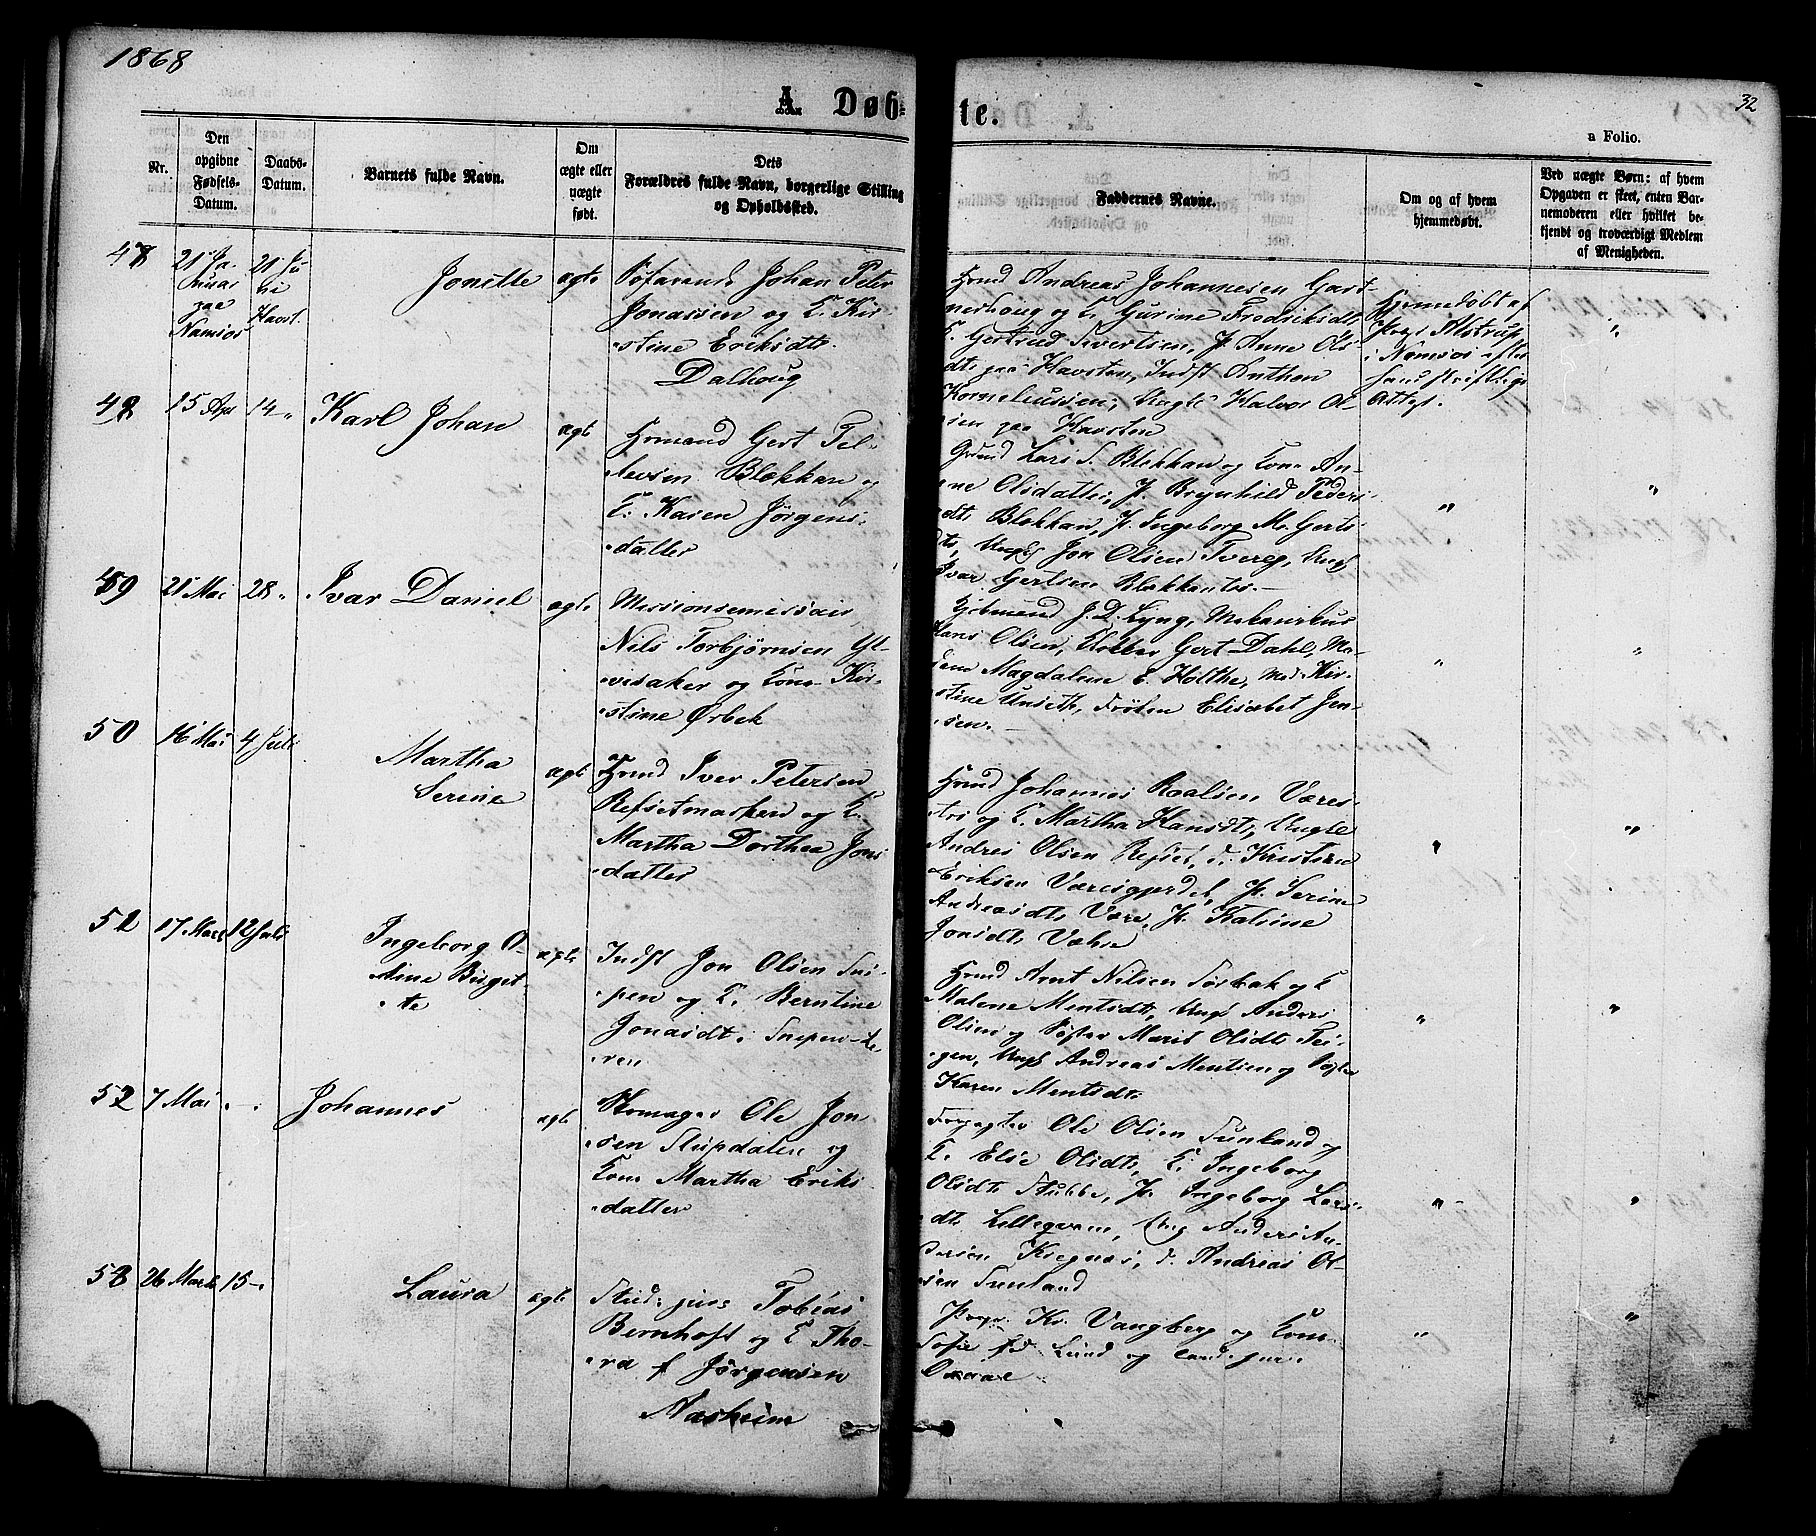 1868
32
A. Døb-
te.
a Folio.
Nr.
Den
opgivne
Fødsels-
Datum.
Daabs-
Datum.
Barnets fulde Navn.
Om
ægte eller
uægte
født.
Dets
Forældres fulde Navn, borgerlige Stilling
og Opholdssted.
Faddernes Navne.
Om og af hvem
hjemmedøbt.
Ved uægte Børn: af hvem
Opgaven er skeet, enten Bar-
nemoderen eller hvilket be-
kjendt og troværdigt Medlem
af Menigheden.
47
21 Ja-
nuar
paa
Namsos
21 Ju
ni
Havst.
Jonette
ægte
Søfarend. Johan Peter
Jonassen og K. Kir-
stine Eriksdtr.
Dalhoug
Grmd Andreas Johannesen Gart-
nerhoug og K. Gurine Fredriksdtr,
K. Gertrud Sivertsen, P. Anne Ols-
dtr paa Havsten, Indst Anthon
Korneliussen, Ungk Halvor Ol-
sen paa Havsten
Hjemedøbt af
Prgs Alstrup
i Namsos efter
hans skriftlige
Attest.
"
48
15 Apr
14 "
Karl Johan
ægte
Grmand Gert Pet-
tersen Blekkan og
K. Karen Jørgens-
datter
Grmd Lars S. Blekkan og Kone An-
ne Olsdatter, P. Brynhild Peders-
dtr Blekkan, P. Ingeborg M. Gerts-
dtr, Ungk Jon Olsen Tvereg, Ung
Ivar Gertsen Blekkanes. —
"
"
49
21 Mai
28 "
Ivar Daniel
ægte
Missionsemissair
Nils Torbjørnsen Yl-
visaker og Kone Kir-
stine Ørbek
Kjøbmand J. D. Lyng, Mekanikus
Hans Olsen, Klokker Gert Dahl, Ma-
dam Magdalene E. Holthe, Mad. Kir-
stine Unseth, Frøken Elisabet Jen-
sen. —
"
"
50
16 Mai
4 Juli
Martha
Serine
ægte
Grmd Iver Petersen
Refsetmarken og K.
Martha Dorthea Jons
datter
Grmd Johannes Roalsen Væres-
tro og K. Martha Hansdtr, Ungk
Andres Olsen Refset, d. Kristian
Eriksen Væresgjerdet, P. Serine
Andreasdtr Være, P. Katrine
Jonsdtr Være
"
"
51
17 Marts
12 Juli
Ingeborg O-
line Birgit-
te
ægte
Indst Jon Olsen Sni-
pen og K. Berntine
Jonasdtr. Snipen-Le-
ren
Grmd Arnt Nilsen Sørbak og K
Malene Mentsdtr, Ungk Andres
Olsen og Søster Marit Olsdtr Tei-
gen, Ungk Andreas Mentsen og Søster
Karen Mentsdtr
"
"
52
7 Mai
- "
Johannes
ægte
Skomager Ole Jon-
sen Stupdalen og
Kone Martha Eriks
datter
Forpagter Ole Olsen Sunland og
K. Elie Olsdtr, K. Ingeborg
Olsdtr Stubbe, P. Ingeborg Lars-
dtr Lillegraven, Ung Anders An-
dersen Kregnes, d. Andreas Ol-
sen Sunland
"
"
53
26 Marts
15 -
Laura
ægte
Stud. juris Tobias
Bernhoft og K Tho-
ra f Jørgensen
Nasheim
Prgr. Kr. Vangberg og Kone
Sofie fd. Lund og Cand. jur.
"
"